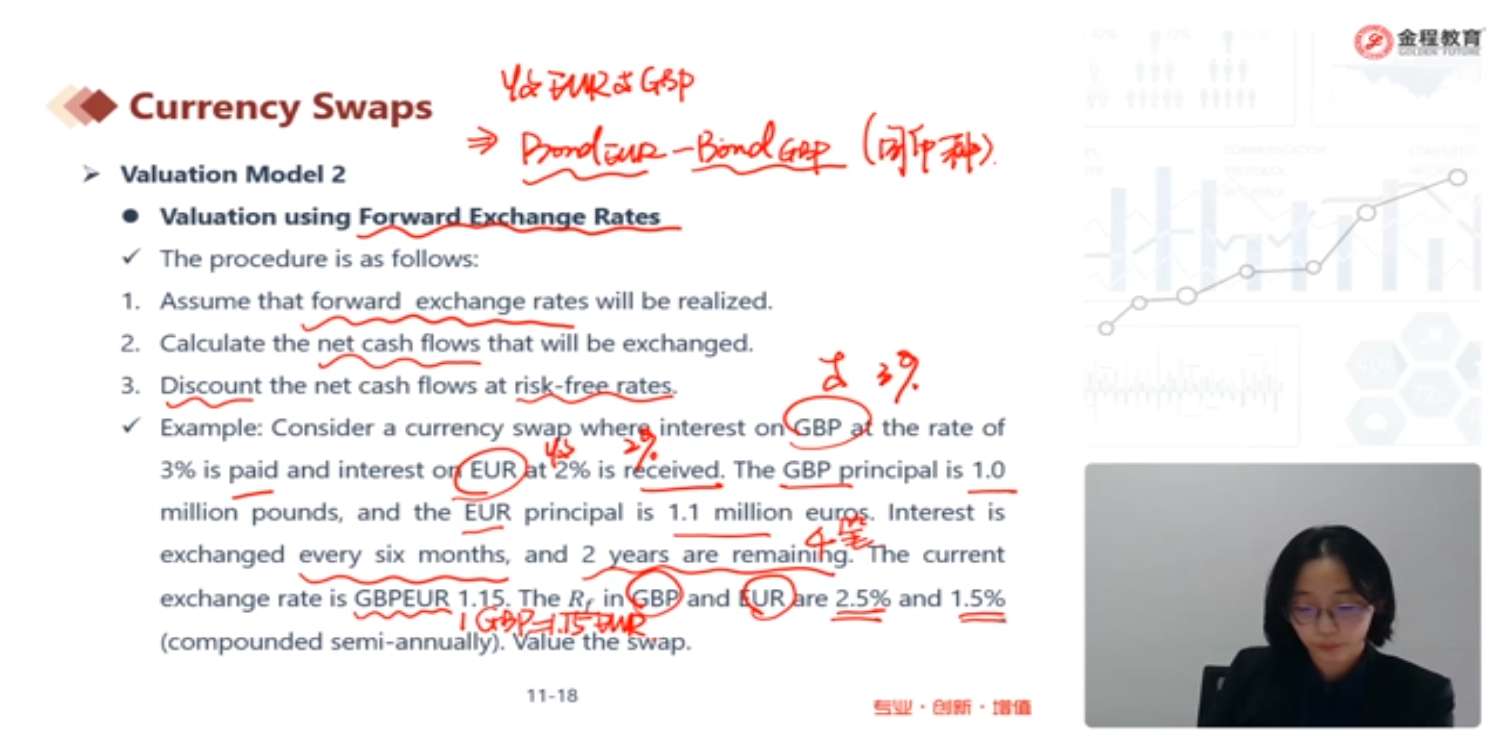 金程教育
GOLDEN FUTURE
Currency Swaps
收 EUR 支 GBP
⇒ Bond EUR - Bond GBP (同币种)
➢ Valuation Model 2
● Valuation using Forward Exchange Rates
✓ The procedure is as follows:
1. Assume that forward exchange rates will be realized.
2. Calculate the net cash flows that will be exchanged.
3. Discount the net cash flows at risk-free rates.
支 3%
✓ Example: Consider a currency swap where interest on GBP at the rate of
收 2%
3% is paid and interest on EUR at 2% is received. The GBP principal is 1.0
million pounds, and the EUR principal is 1.1 million euros. Interest is
4笔
exchanged every six months, and 2 years are remaining. The current
exchange rate is GBPEUR 1.15. The Rf in GBP and EUR are 2.5% and 1.5%
1 GBP=1.15 EUR
(compounded semi-annually). Value the swap.
11-18
专业·创新·增值